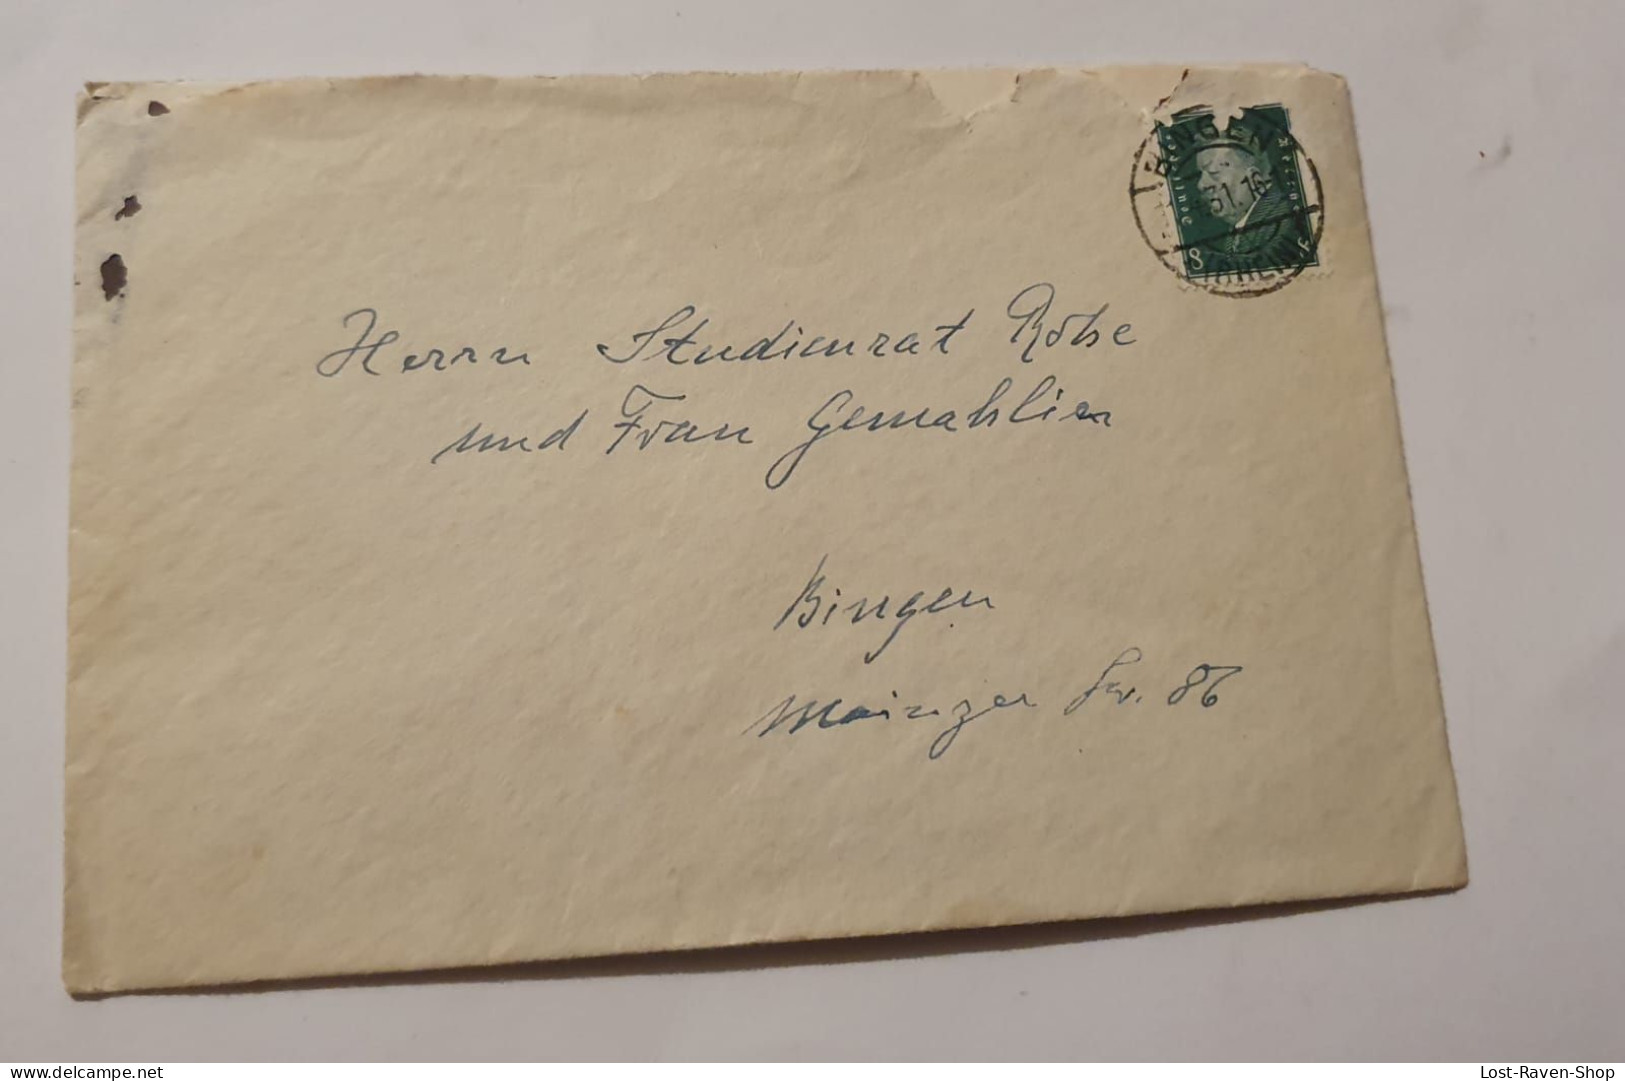 BINGEN
31.16
(RHEIN)
8
Herrn Studienrat
und Frau Gemahlin
Bingen
Mainzer Str. 86
Lost-Raven-Shop
delcampe.net